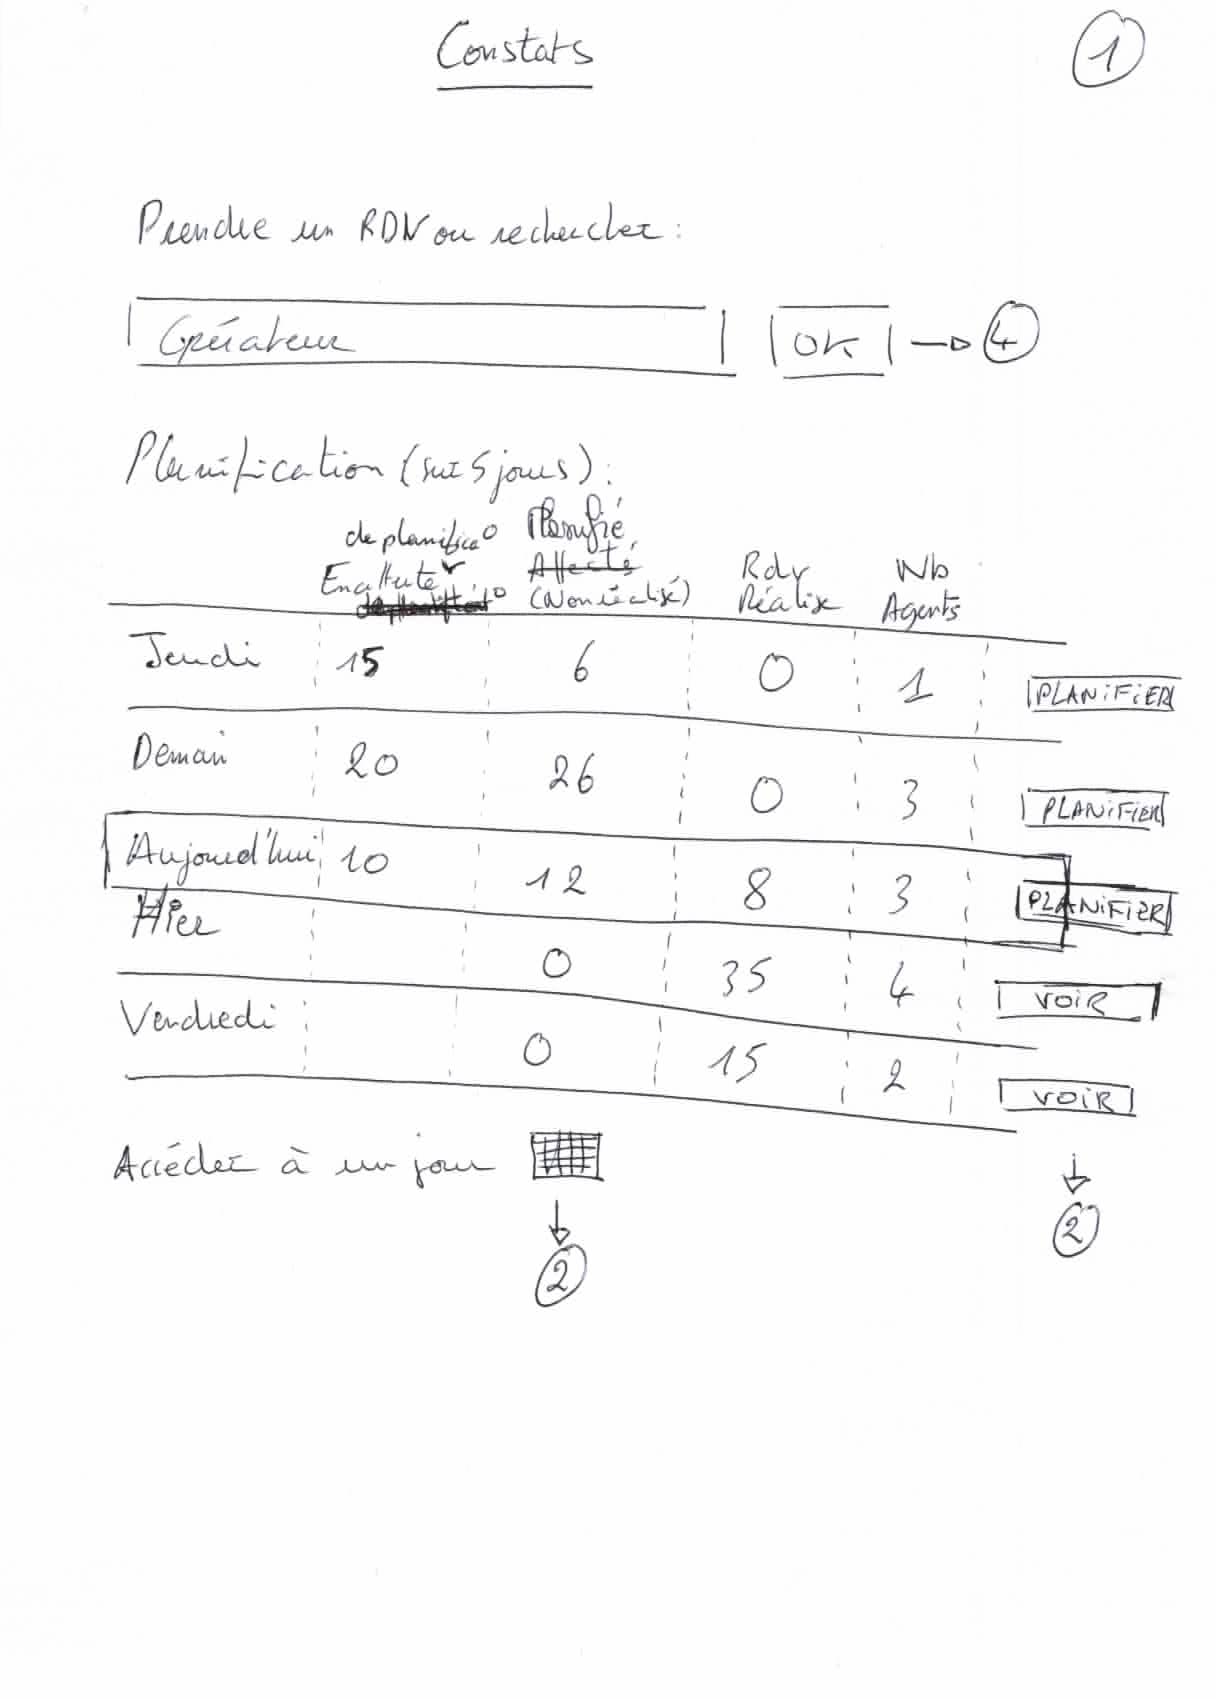 Constats
1
Prendre un RDV ou rechercher :
Opérateur OK → 4
Planification (sur 5 jours) :
de planificao Planifié
En attente Affecté Rdv Nb
(Non réalisé) Réalisé Agents
Jeudi 15 6 0 1 PLANIFIER
Demain 20 26 0 3 PLANIFIER
Aujourd'hui 10 12 8 3 PLANIFIER
Hier 0 35 4 VOIR
Vendredi 0 15 2 VOIR
Accéder à un jour
2
2